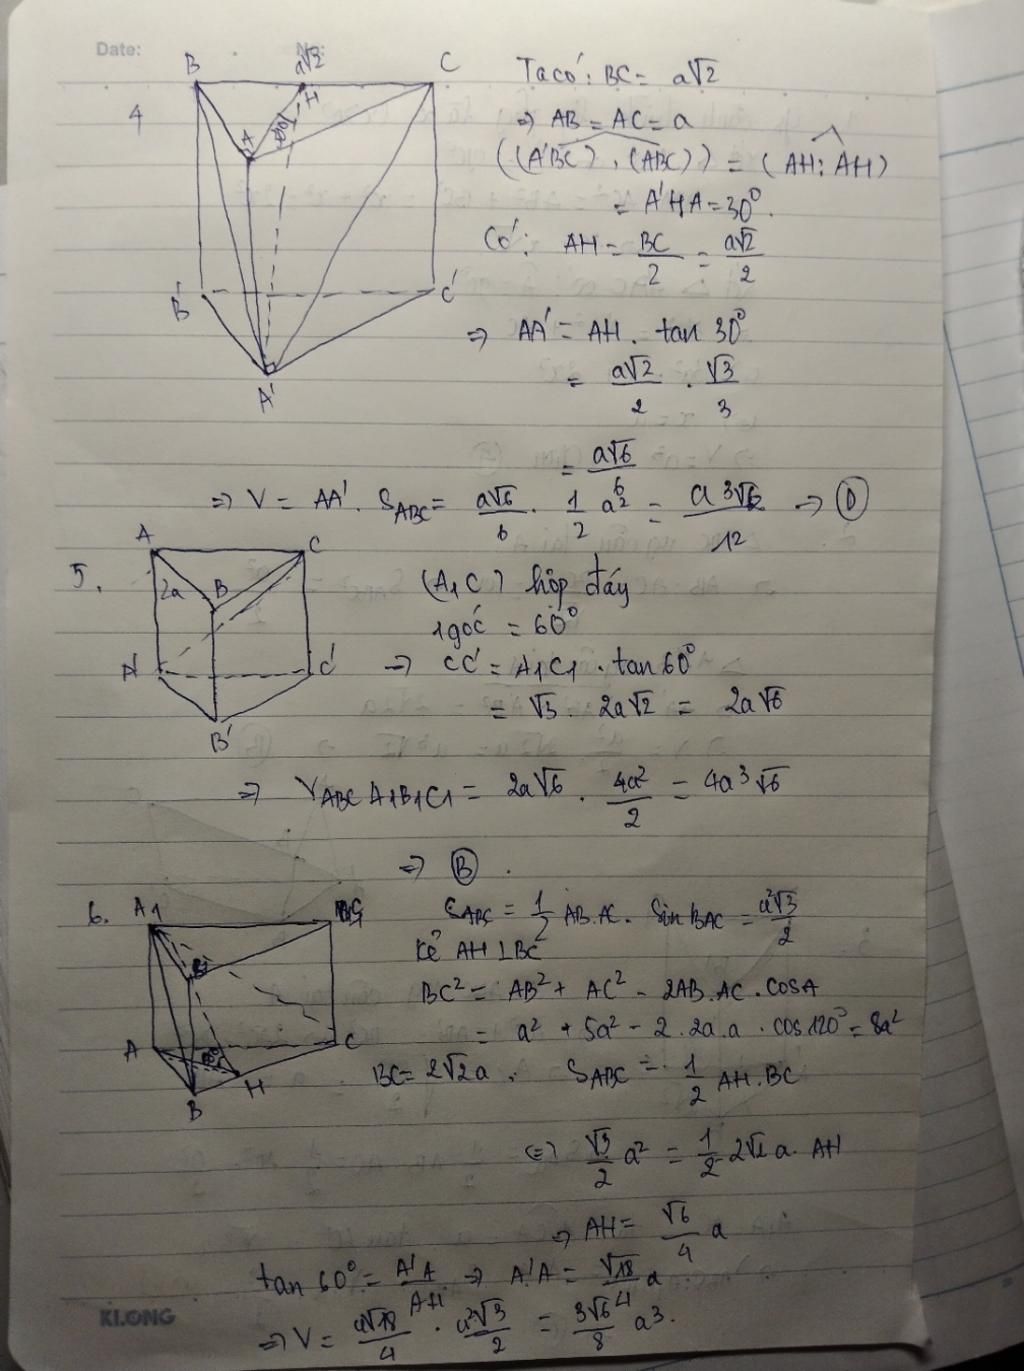 Date: No:
4
B a√2 H C
A 30°
B' C'
A'
Ta có: BC = a√2
=> AB = AC = a
((A'BC), (ABC)) = (AH; AH)
= A'HA = 30°.
Có: AH = BC/2 = a√2/2
=> AA' = AH . tan 30°
= a√2/2 . √3/3
= a√6/6
=> V = AA' . S_ABC = a√6/6 . 1/2 a² = a³√6/12 -> (D)
5.
A C
2a B
A' C'
B'
(A₁C) hợp đáy
1 góc = 60°
=> CC' = A₁C₁ . tan 60°
= √3 . 2a√2 = 2a√6
=> V_ABC A₁B₁C₁ = 2a√6 . 4a²/2 = 4a³√6
=> (B) .
6. A₁
A C
B H
S_ABC = 1/2 AB.AC. Sin BAC = a²√3/2
Kẻ AH ⊥ BC
BC² = AB² + AC² - 2AB.AC.COSA
= a² + 5a² - 2.2a.a . cos 120° = 8a²
BC = 2√2a . S_ABC = 1/2 AH.BC
<=> √3/2 a² = 1/2 2√2 a. AH
=> AH = √6/4 a
tan 60° = A'A/AH => A'A = √18/4 a
=> V = a√18/4 . a²√3/2 = 3√6/8 a³.
KLONG